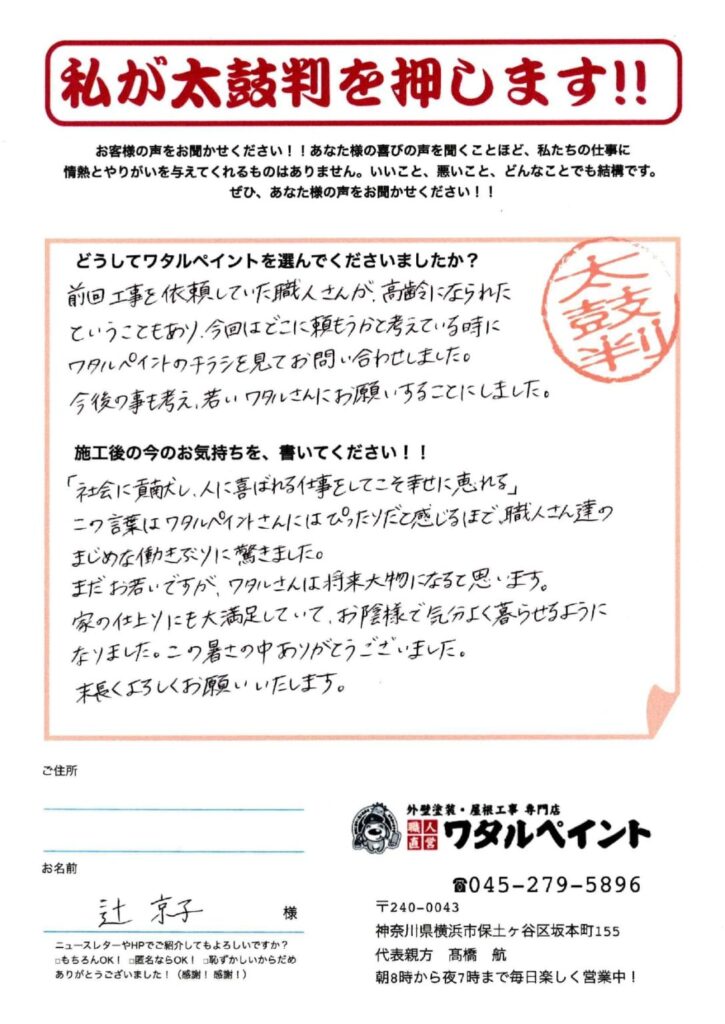 私が太鼓判を押します!!
お客様の声をお聞かせください！！あなた様の喜びの声を聞くことほど、私たちの仕事に
情熱とやりがいを与えてくれるものはありません。いいこと、悪いこと、どんなことでも結構です。
ぜひ、あなた様の声をお聞かせください！！
どうしてワタルペイントを選んでくださいましたか？
太鼓判
前回工事を依頼していた職人さんが、高齢になられた
ということもあり、今回はどこに頼もうかと考えている時に
ワタルペイントのチラシを見てお問い合わせしました。
今後の事も考え、若いワタルさんにお願いすることにしました。
施工後の今のお気持ちを、書いてください！！
「社会に貢献し、人に喜ばれる仕事をしてこそ幸せに恵れる」
この言葉はワタルペイントさんにはぴったりだと感じるほで、職人さん達の
まじめな働きぶりに驚きました。
まだお若いですが、ワタルさんは将来大物になると思います。
家の仕上りにも大満足していて、お陰様で気分よく暮らせるように
なりました。この暑さの中ありがとうございました。
末長くよろしくお願いいたします。
ご住所
お名前
辻 京子 様
ニュースレターやHPでご紹介してもよろしいですか？
□もちろんOK！ □匿名ならOK！ □恥ずかしいからだめ
ありがとうございました！（感謝！感謝！）
外壁塗装・屋根工事 専門店
職人直営 ワタルペイント
☎045-279-5896
〒240-0043
神奈川県横浜市保土ヶ谷区坂本町155
代表親方 髙橋 航
朝8時から夜7時まで毎日楽しく営業中！